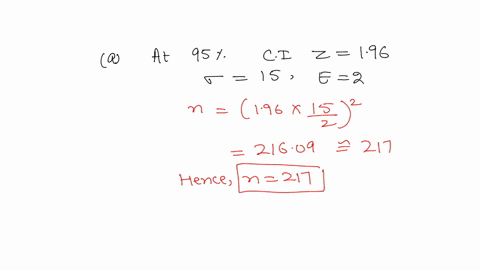 (a) At 95% C.I Z = 1.96
σ = 15, E = 2
n = (1.96 × 15/2)²
= 216.09 ≅ 217
Hence, n = 217